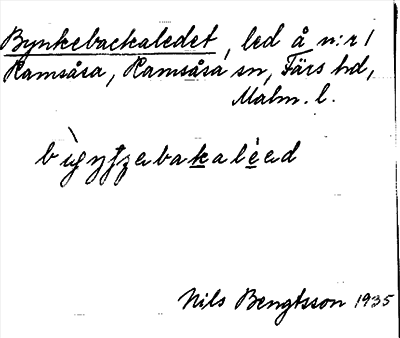 Bynkebackaledet, led å n:r 1
Ramsåsa, Ramsåsa sn, Färs hd,
Malm. l.
Nils Bengtsson 1935